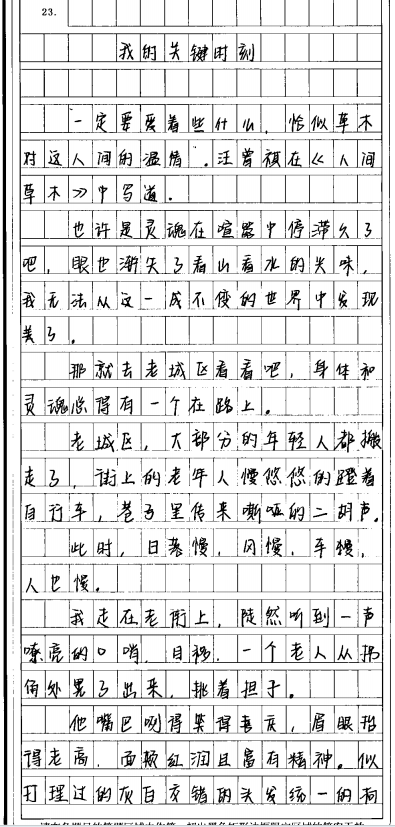 23.
我的关键时刻
一定要爱着些什么,恰似草木
对这人间的温情.汪曾祺在《人间
草木》中写道.
也许是灵魂在喧嚣中停滞久了
吧,眼也渐失了看山看水的兴味,
我无法从这一成不变的世界中发现
美了.
那就去老城区看看吧,身体和
灵魂总得有一个在路上.
老城区,大部分的年轻人都搬
走了,街上的老年人慢悠悠的蹬着
自行车,巷子里传来嘶哑的二胡声.
此时,日暮慢,风慢,车慢,
人也慢.
我走在老街上,陡然听到一声
嘹亮的口哨,目移,一个老人从拐
角处晃了出来,挑着担子.
他嘴巴咧得笑得喜庆,眉眼抬
得老高,面颊红润且富有精神.似
打理过的灰白交错的头发统一的向